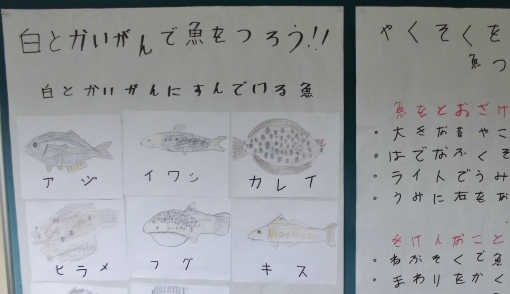 白とかいがんで魚をつろう!!
白とかいがんにすんでける魚
アジ
イワシ
カレイ
ヒラメ
フグ
キス
やくそくを
魚つ
魚をとおざけ
・大きなるやこ
・はでなふくそ
・ライトでうみ
・うみに石をな
きけんなこと
・ねぶそくで魚
・まわりをかく